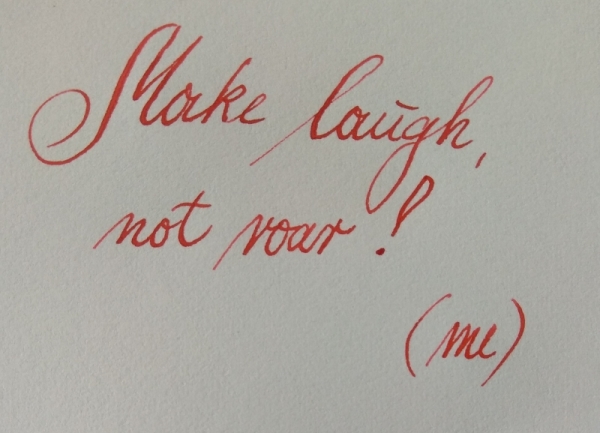 Make laugh,
not roar!
(me)